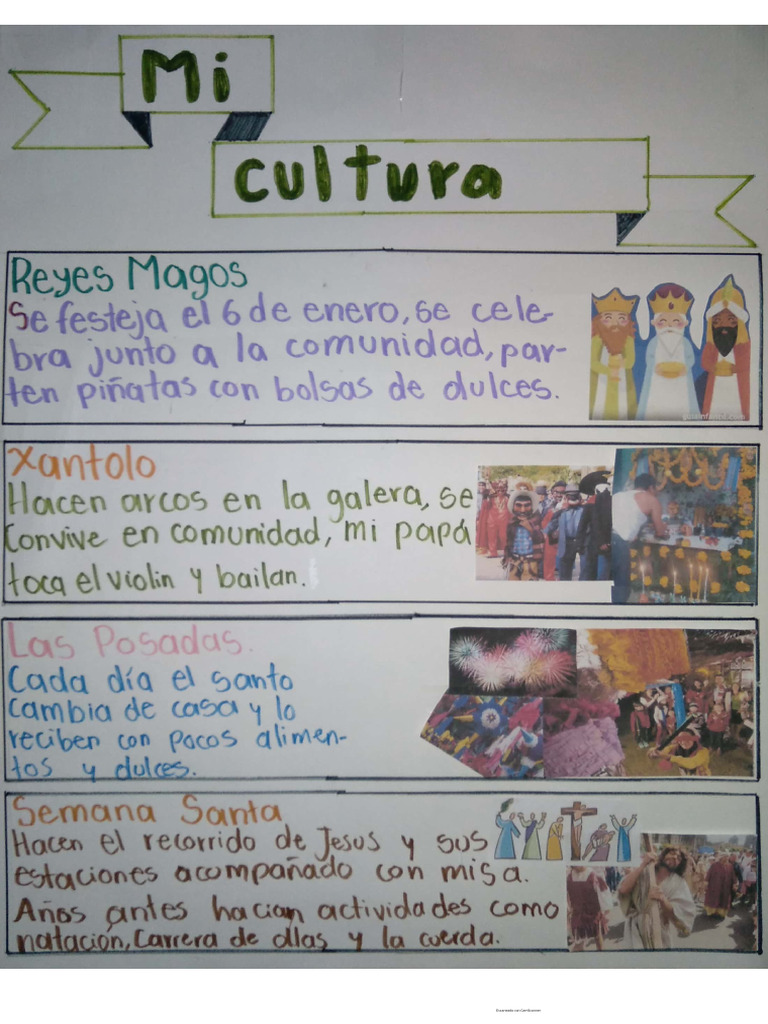 Mi
cultura
Reyes Magos
Se festeja el 6 de enero, se cele-
bra junto a la comunidad, par-
ten piñatas con bolsas de dulces.
guiainfantil.com
Xantolo
Hacen arcos en la galera, se
convive en comunidad, mi papá
toca el violin y bailan.
Las Posadas.
Cada día el santo
cambia de casa y lo
reciben con pocos alimen-
tos y dulces.
Semana Santa
Hacen el recorrido de Jesus y sus
estaciones acompañado con misa.
Años antes hacian actividades como
natación, Carrera de ollas y la cuerda.
Escaneado con CamScanner